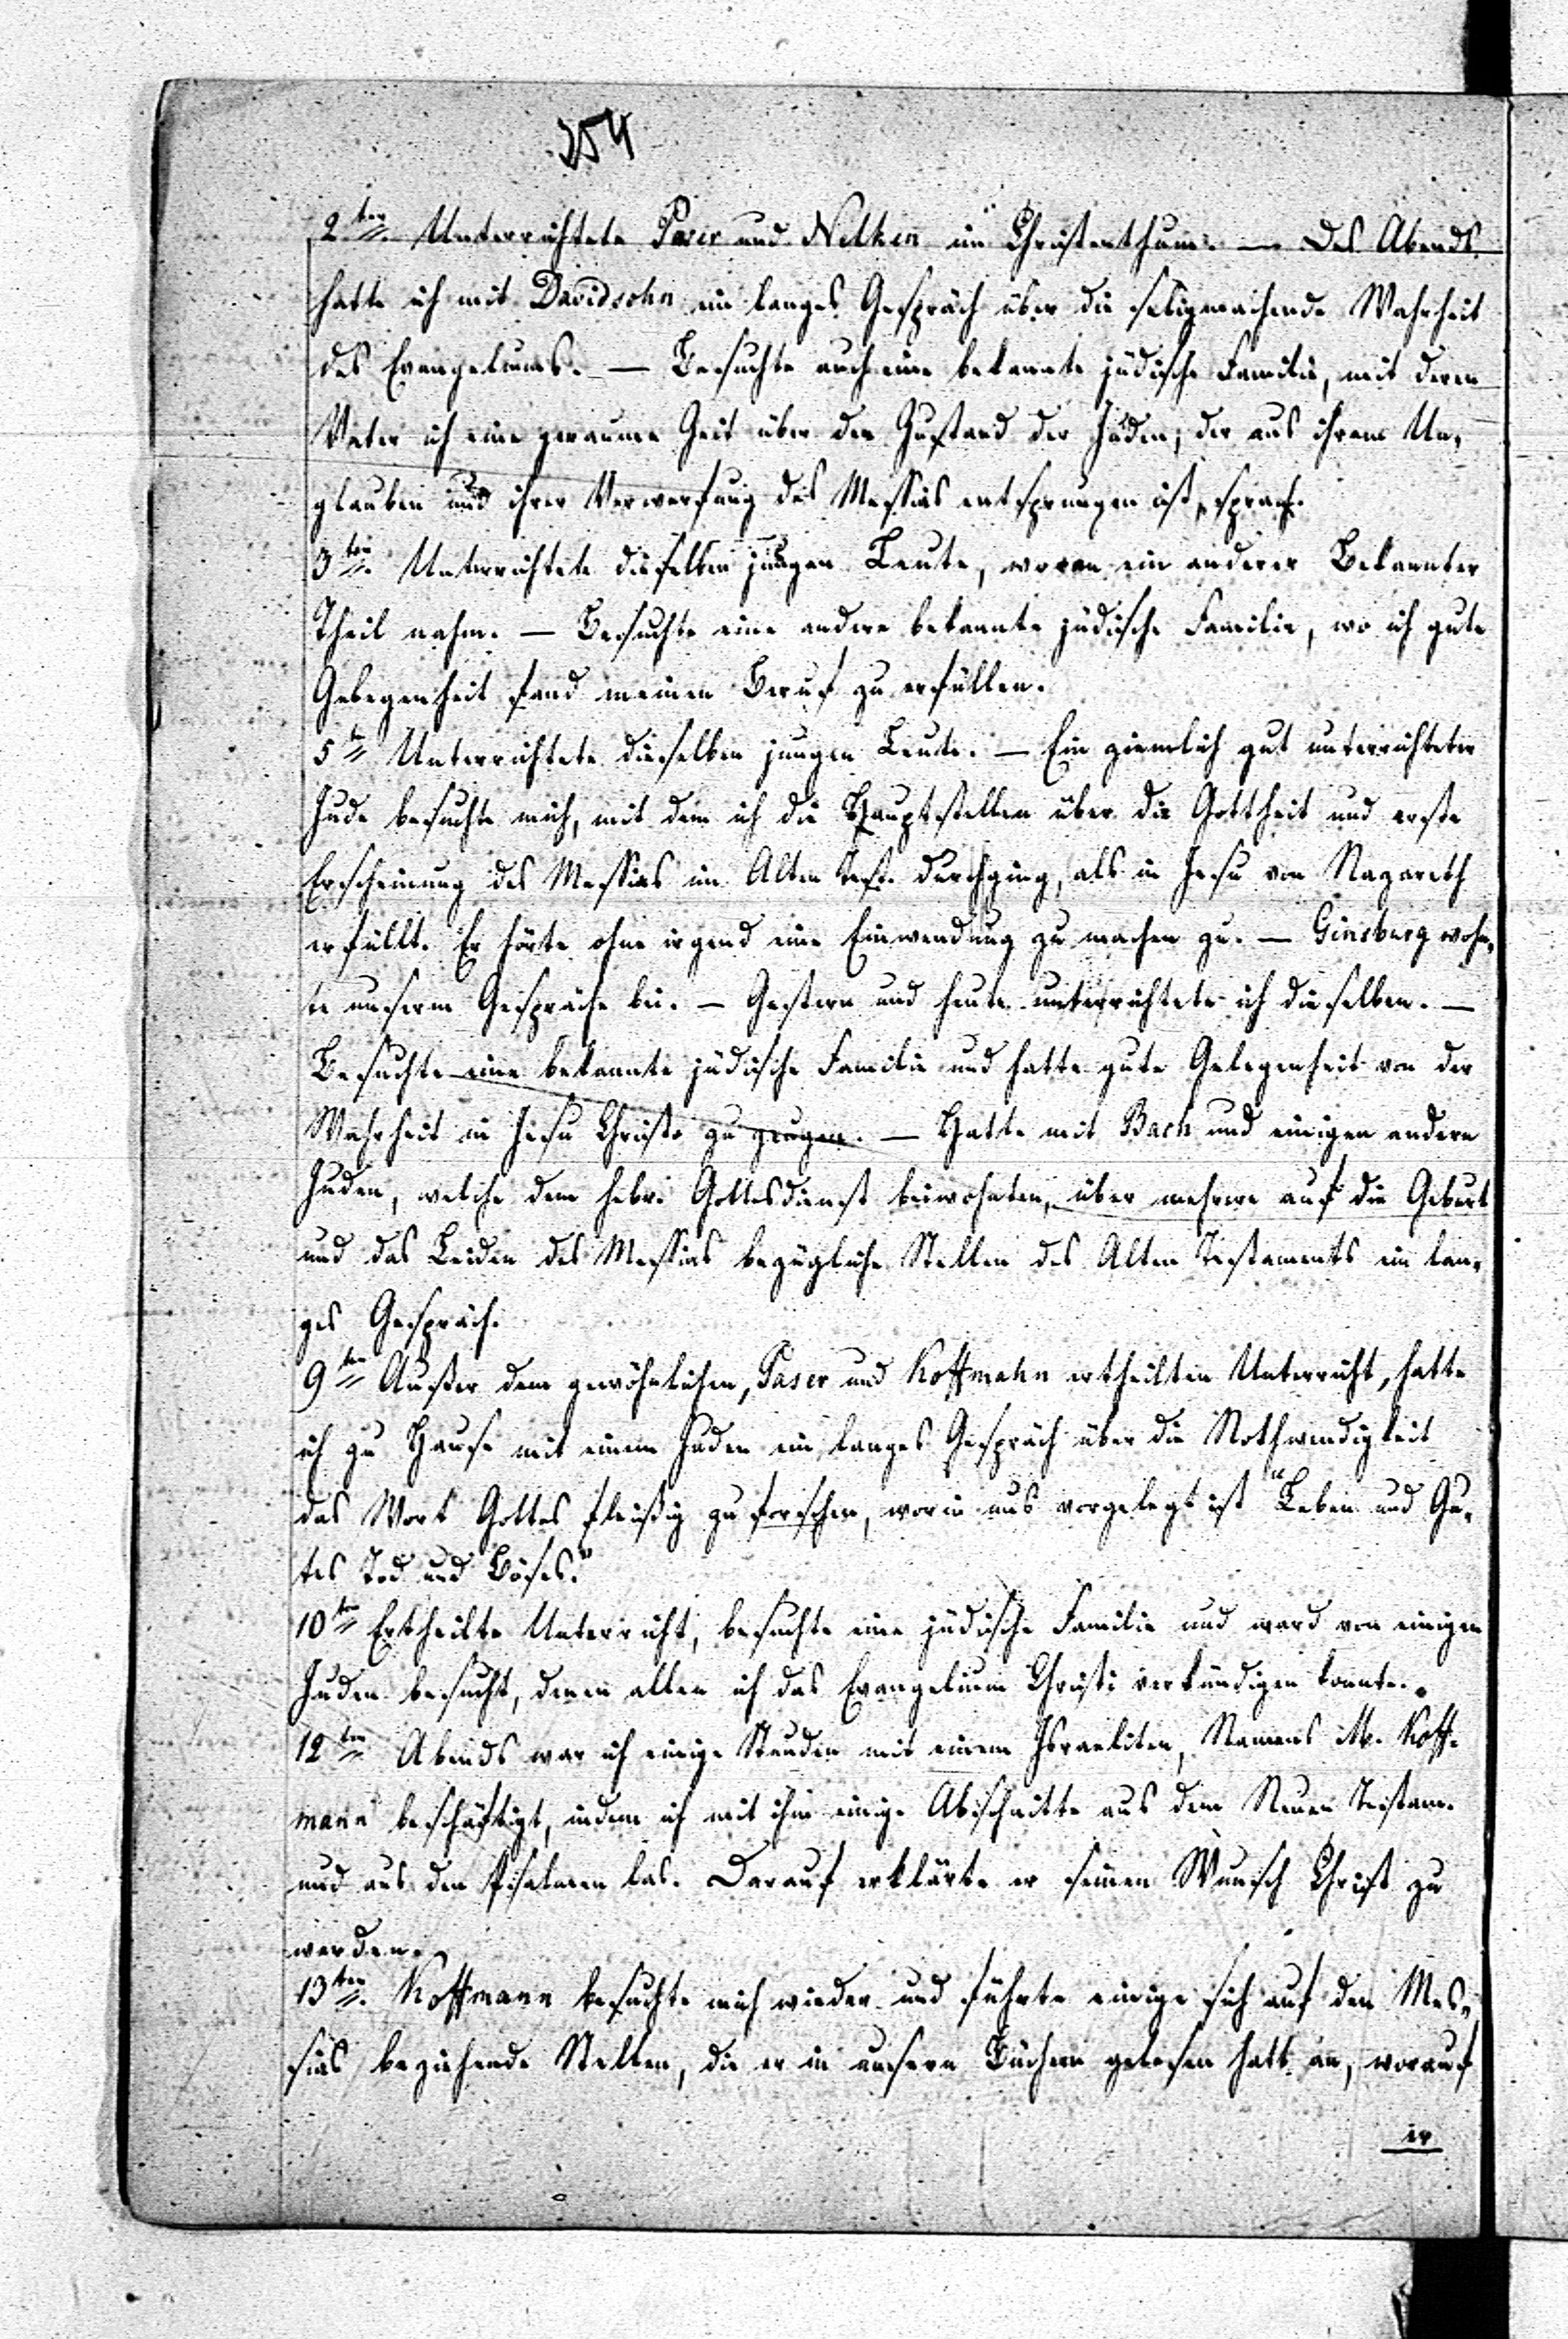 254
2ten. Unterrichtete Paser und Nelken im Christenthum. — Des Abends
hatte ich mit Davidsohn ein langes Gespräch über die seligmachende Wahrheit
des Evangeliums. — Besuchte auch eine bekannte jüdische Familie, mit deren
Vater ich eine geraume Zeit über den Zustand der Juden, der aus ihrem Un-
glauben und ihrer Verwerfung des Messias entsprungen ist, sprach.
3ten. Unterrichtete dieselben jungen Leute, woran ein anderer Bekannter
Theil nahm. — Besuchte eine andere bekannte jüdische Familie, wo ich gute
Gelegenheit fand meinen Beruf zu erfüllen.
5t Unterrichtete dieselben jungen Leute. — Ein ziemlich gut unterrichteter
Jude besuchte mich, mit dem ich die Hauptstellen über die Gottheit und erste
Erscheinung des Messias im Alten Test. durchging, als in Jesu von Nazareth
erfüllt. Er hörte ohne irgend eine Einwendung zu machen zu. — Ginsburg wohn-
te unserem Gespräche bei. — Gestern und heute unterrichtete ich dieselben. —
Besuchte eine bekannte jüdische Familie und hatte gute Gelegenheit von der
Wahrheit in Jesu Christo zu zeugen. — Hatte mit Bach und einigen andern
Juden, welche dem hebr. Gottesdienst beiwohnten, über mehrere auf die Geburt
und das Leiden des Messias bezügliche Stellen des Alten Testaments ein lan-
ges Gespräch.
9ten Außer dem gewöhnlichen, Paser und Koffmahn ertheilten Unterricht, hatte
ich zu Hause mit einem Juden ein langes Gespräch über die Nothwendigkeit
das Wort Gottes fleißig zu forschen, worin uns vorgelegt ist "Leben und Gu-
tes Tod und Böses."
10ten Ertheilte Unterricht, besuchte eine jüdische Familie und ward von einigen
Juden besucht, denen allen ich das Evangelium Christi verkündigen konnte.
12ten Abends war ich einige Stunden mit einem Israeliten, Namens M. Koff-
mann beschäftigt, indem ich mit ihm einige Abschnitte aus dem Neuen Testam.
und aus den Psalmen las. Darauf erklärte er seinen Wunsch Christ zu
werden.
13ten. Koffmann besuchte mich wieder und führte einige sich auf den Mes-
sias beziehende Stellen, die er in unsern Büchern gelesen hatt an, worauf